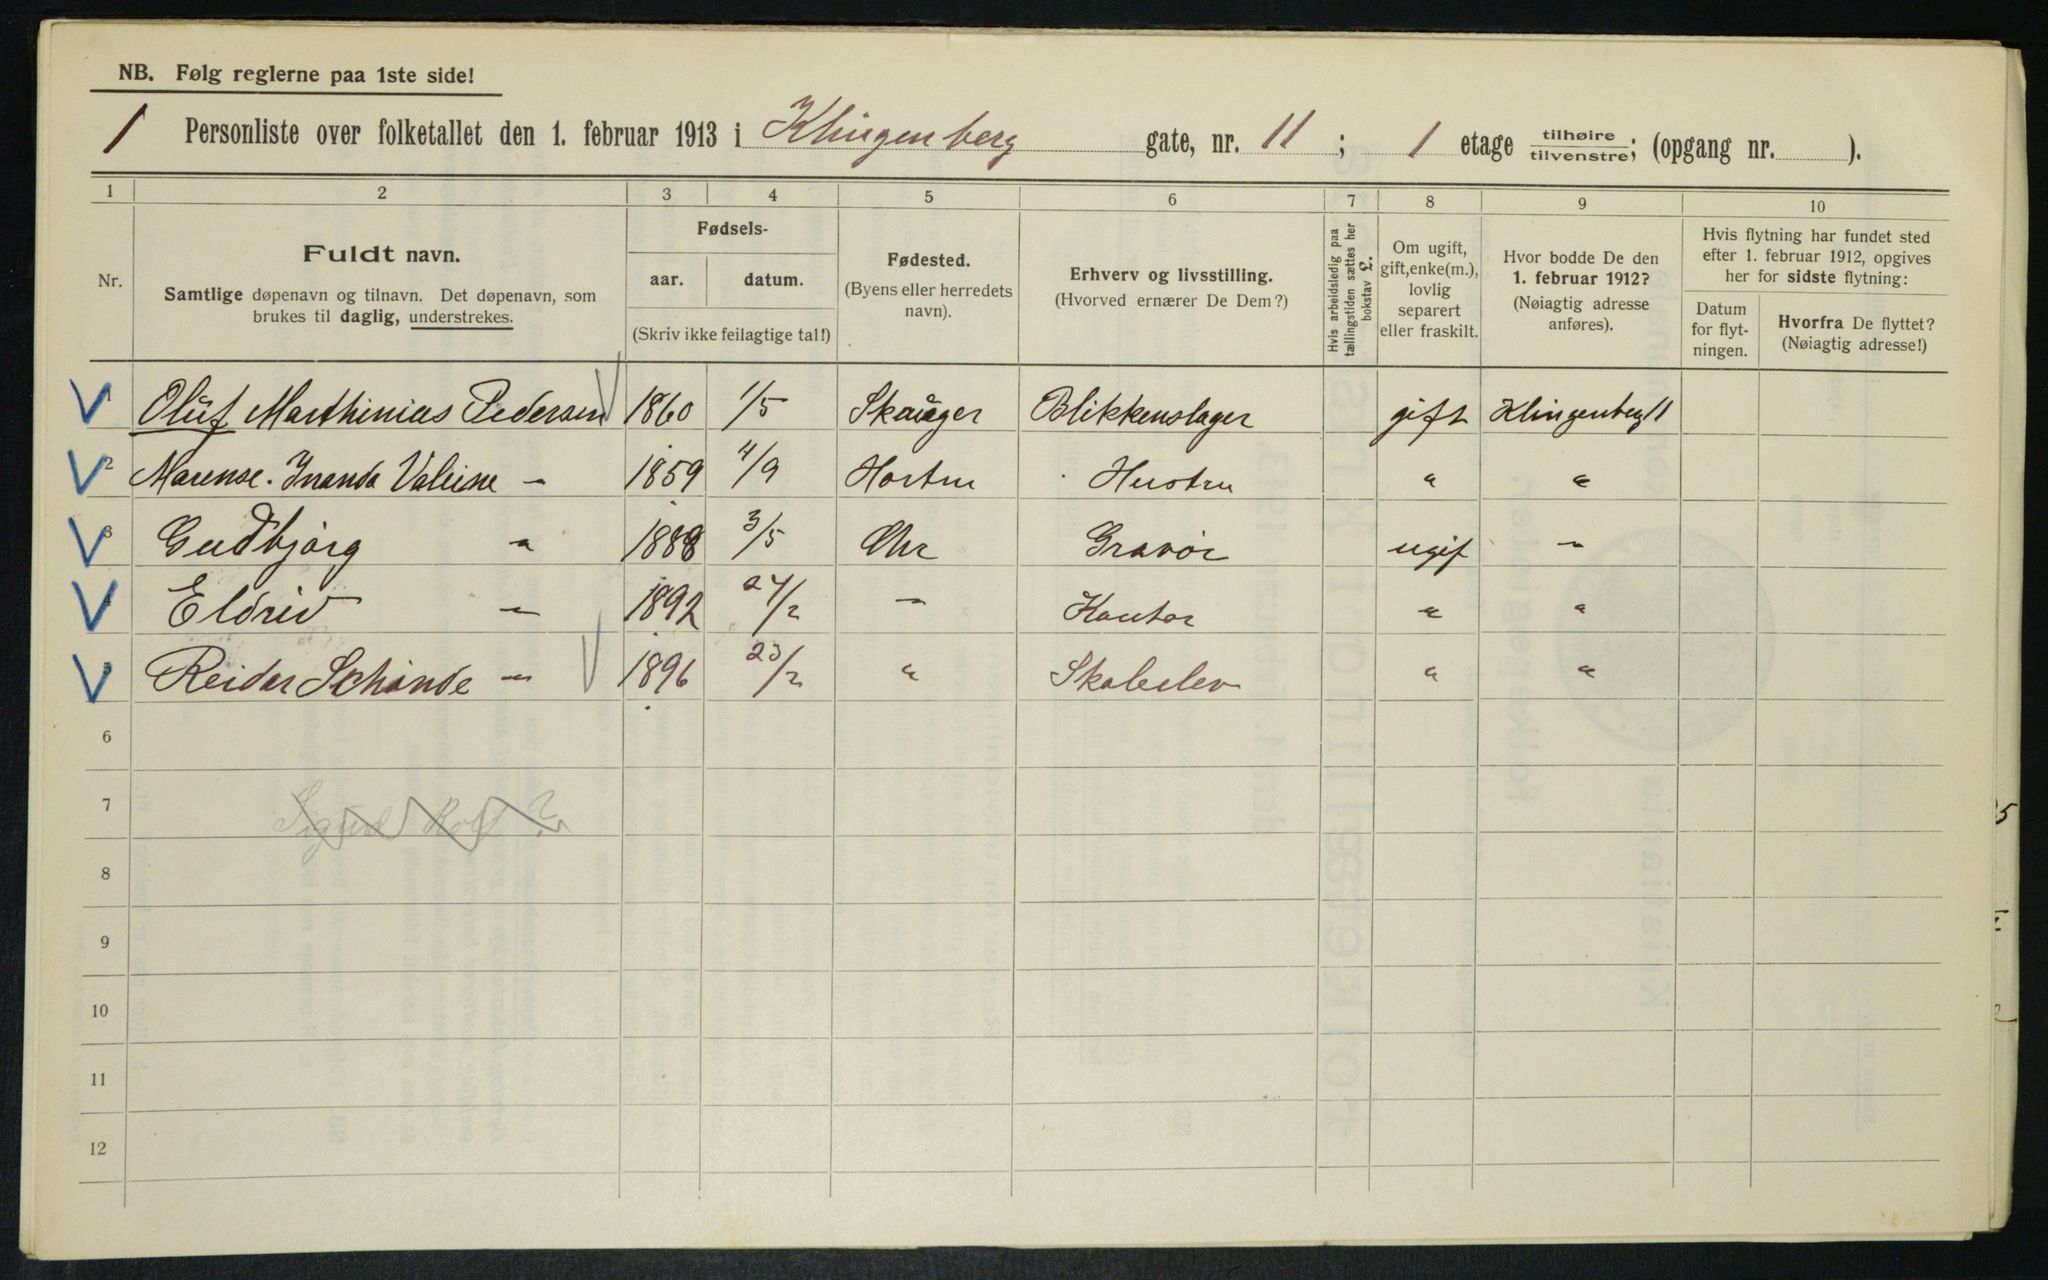 NB. Følg reglerne paa 1ste side!
1 Personliste over folketallet den 1. februar 1913 i Klingenberg gate, nr. 11; 1 etage tilhøire tilvenstre; (opgang nr. ).
1 2 3 4 5 6 7 8 9 10
Nr.
Fuldt navn.
Samtlige døpenavn og tilnavn. Det døpenavn, som
brukes til daglig, understrekes.
Fødsels-
aar. datum.
(Skriv ikke feilagtige tal!)
Fødested.
(Byens eller herredets
navn).
Erhverv og livsstilling.
(Hvorved ernærer De Dem?)
Hvis arbeidsledig paa
tællingstiden sættes her
bokstav L.
Om ugift,
gift, enke(m.),
lovlig
separert
eller fraskilt.
Hvor bodde De den
1. februar 1912?
(Nøiagtig adresse
anføres).
Hvis flytning har fundet sted
efter 1. februar 1912, opgives
her for sidste flytning:
Datum
for flyt-
ningen.
Hvorfra De flyttet?
(Nøiagtig adresse!)
1 Oluf Marthinius Pedersen 1860 1/5 Skauger Blikkenslager gift Klingenbeg 11
2 Marense. Inanda Valeine " 1859 4/9 Horten Hustru " "
3 Gudbjørg " 1888 3/5 Chr Gravør ugif "
4 Eldrid " 1892 24/2 " Kontor " "
5 Reidar Schande " 1896 23/2 " Skoleelev " "
6
7 Sigurd Rolf ?
8
9
10
11
12